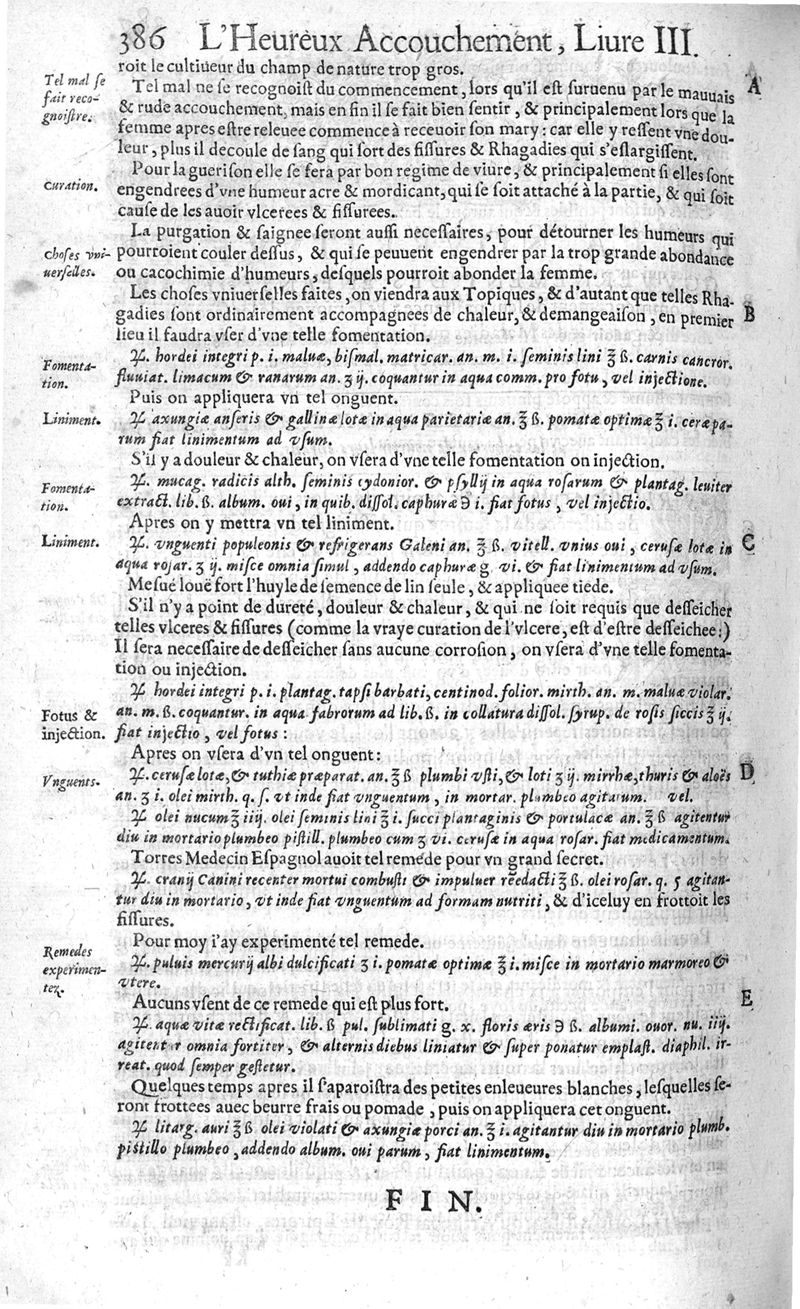 386 L'Heureux Accouchement, Liure III.
roit le cultiueur du champ de nature trop gros.
Tel mal se
fait reco-
gnoistre.
Tel mal ne se recognoist du commencement, lors qu'il est suruenu par le mauuais A
& rude accouchement, mais en fin il se fait bien sentir, & principalement lors que la
femme apres estre releuee commence à receuoir son mary: car elle y ressent vne dou-
leur, plus il decoule de sang qui sort des fissures & Rhagadies qui s'eslargissent.
Curation.
Pour la guerison elle se fera par bon regime de viure, & principalement si elles sont
engendrees d'vne humeur acre & mordicant, qui se soit attaché à la partie, & qui soit
cause de les auoir vlcerees & fissurees.
Choses vni-
uerselles.
La purgation & saignee seront aussi necessaires, pour détourner les humeurs qui
pourroient couler dessus, & qui se peuuent engendrer par la trop grande abondance
ou cacochimie d'humeurs, desquels pourroit abonder la femme.
Les choses vniuerselles faites, on viendra aux Topiques, & d'autant que telles Rha-
gadies sont ordinairement accompagnees de chaleur, & demangeaison, en premier B
lieu il faudra vser d'vne telle fomentation.
Fomenta-
tion.
♃. hordei integri p. i. maluæ, bismal. matricar. an. m. i. seminis lini ℥ ß. carnis cancror.
fluuiat. limacum & ranarum an. ʒ ij. coquantur in aqua comm. pro fotu, vel injectione.
Puis on appliquera vn tel onguent.
Liniment.
♃ axungiæ anseris & gallinæ lotæ in aqua parietariæ an. ℥ ß. pomatæ optimæ ℥ i. ceræ pa-
rum fiat linimentum ad vsum.
S'il y a douleur & chaleur, on vsera d'vne telle fomentation on injection.
Fomenta-
tion.
♃. mucag. radicis alth. seminis cydonior. & psyllij in aqua rosarum & plantag. leuiter
extract. lib. ß. album. oui, in quib. dissol. caphuræ ℈ i. fiat fotus, vel injectio.
Apres on y mettra vn tel liniment.
Liniment.
♃. vnguenti populeonis & refrigerans Galeni an. ℥ ß. vitell. vnius oui, cerusæ lotæ in C
aqua rojar. ʒ ij. misce omnia simul, addendo caphuræ g vi. & fiat linimentum ad vsum.
Mesué louë fort l'huyle de semence de lin seule, & appliquee tiede.
S'il n'y a point de dureté, douleur & chaleur, & qui ne soit requis que desseicher
telles vlceres & fissures (comme la vraye curation de l'vlcere, est d'estre desseichee:)
Il sera necessaire de desseicher sans aucune corrosion, on vsera d'vne telle fomenta-
tion ou injection.
Fotus &
injection.
♃ hordei integri p. i. plantag. tapsi barbati, centinod. folior. mirth. an. m. maluæ violar.
an. m. ß. coquantur. in aqua fabrorum ad lib. ß. in collatura dissol. syrup. de rosis siccis ℥ ij.
fiat injectio, vel fotus:
Apres on vsera d'vn tel onguent:
Vnguents.
♃. cerusæ lotæ, & tuthiæ præparat. an. ℥ ß plumbi vsti, & loti ʒ ij. mirrhæ, thuris & aloës D
an. ʒ i. olei mirth. q. s. vt inde fiat vnguentum, in mortar. plumbeo agitarum. vel.
♃ olei nucum ℥ iiij. olei seminis lini ℥ i. succi plantaginis & portulacæ an. ℥ ß agitentur
diu in mortario plumbeo pistill. plumbeo cum ʒ vi. cerusæ in aqua rosar. fiat medicamentum.
Torres Medecin Espagnol auoit tel remede pour vn grand secret.
♃. cranij Canini recenter mortui combusti & impuluer reedacti ℥ ß. olei rosar. q. s agitan-
tur diu in mortario, vt inde fiat vnguentum ad formam nutriti, & d'iceluy en frottoit les
fissures.
Remedes
experimen-
tez.
Pour moy i'ay experimenté tel remede.
♃. puluis mercurij albi dulcificati ʒ i. pomatæ optimæ ℥ i. misce in mortario marmoreo &
vtere.
Aucuns vsent de ce remede qui est plus fort. E
♃. aquæ vitæ rectificat. lib. ß pul. sublimati g. x. floris æris ℈ ß. albumi. ouor. nu. iiij.
agitentur omnia fortiter, & alternis diebus liniatur & super ponatur emplast. diaphil. ir-
reat. quod semper gestetur.
Quelques temps apres il s'aparoistra des petites enleueures blanches, lesquelles se-
ront frottees auec beurre frais ou pomade, puis on appliquera cet onguent.
♃ litarg. auri ℥ ß olei violati & axungiæ porci an. ℥ i. agitantur diu in mortario plumb.
pistillo plumbeo, addendo album. oui parum, fiat linimentum.
FIN.